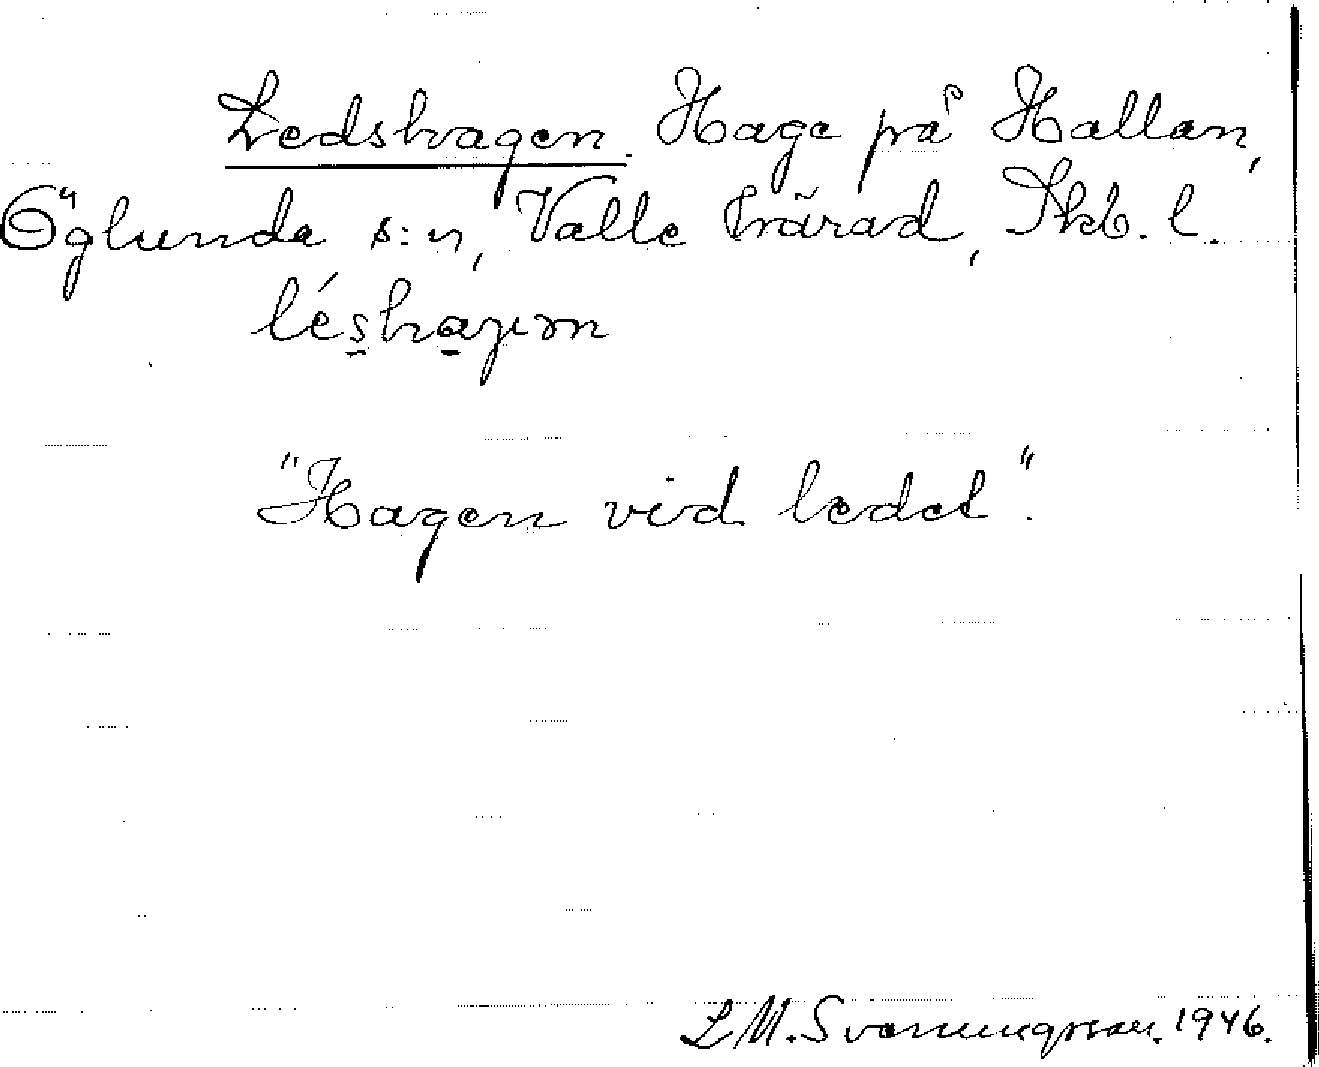 Ledshagen. Hage på Hallan,
Öglunda s:n, Valle härad, Skb. l.
léshaգen
"Hagen vid ledet".
L M. Svanungsson. 1946.